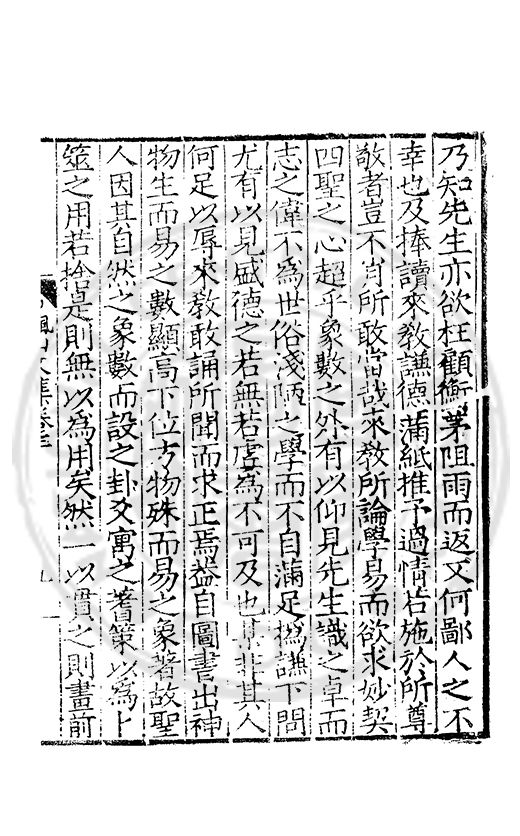 乃知先生亦欲枉顧衡茅阻雨而返又何鄙人之不
幸也及捧讀來教謙德蒲紙推予過情若施於所尊
敬者豈不肖所敢當哉來教所論學易而欲求妙契
四聖之心超乎象數之外有以仰見先生識之卓而
志之偉不為世俗淺陋之學而不自滿足撝謙下問
尤有以見盛德之若無若虛為不可及也某非其人
何足以辱來教敢誦所聞而求正焉葢自圖書出神
物生而易之數顯高下位方物殊而易之象著故聖
人因其自然之象數而設之卦爻寓之蓍策以為卜
筮之用若捨是則無以為用矣然一以貫之則畫前
楓山文集卷三
九